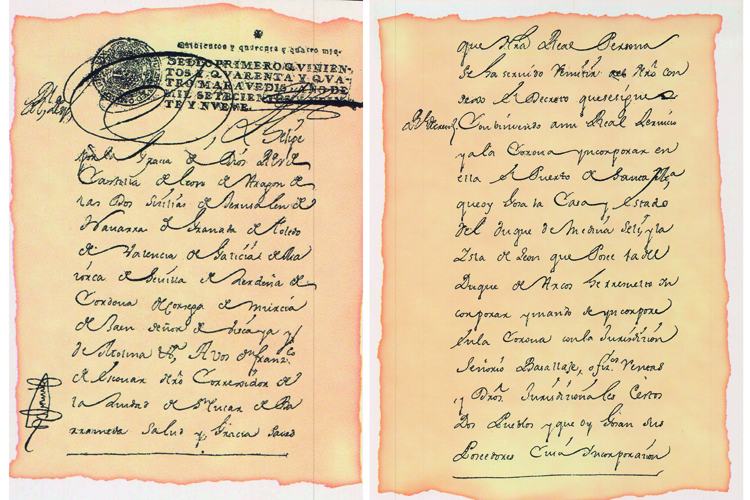 Quinientos y quarenta y quatro mrs.
SELLO PRIMERO, QVINIEN-
TOS Y QVARENTA Y QVA-
TRO MARAVEDIS, AÑO DE
MIL SETECIENTOS
TE Y NVEVE.
D. Felipe
por la Gracia de Dios Rey de
Castilla de Leon de Aragon de
las Dos Sicilias de Jerusalen de
Navarra de Granada de Toledo
de Valencia de Galicia de Ma
llorca de Sevilla de Cerdeña de
Cordova de Corcega de Murcia
de Jaen Señor de Vizcaya y
de Molina &a. A vos Dn. franco.
de Escouar Nro Correxidor de
la Ciudad de Sn. Lucar de Ba
rrameda Salud y Gracia Saved
que Nra Real Persona
Se ha servido Remitir al Nro Con
sejo el Decreto que se sigue
Rl. Decreto. Combiniendo a mi Real Servicio
y a la Corona yncorporar en
ella el Puerto de Santa Ma
que oy Goza la Casa y Estado
del Duque de Medina Zeli, y la
Isla de Leon que Posee la del
Duque de Arcos he resuelto In
corporar y mando se yncorpore
en la Corona con la Jurisdicion
Señorio Basallaje, ofizs. Rentas
y Dros. Jurisdicionales Estos
Dos Pueblos y que oy Gozan sus
Poseedores Cuia Incorporacion